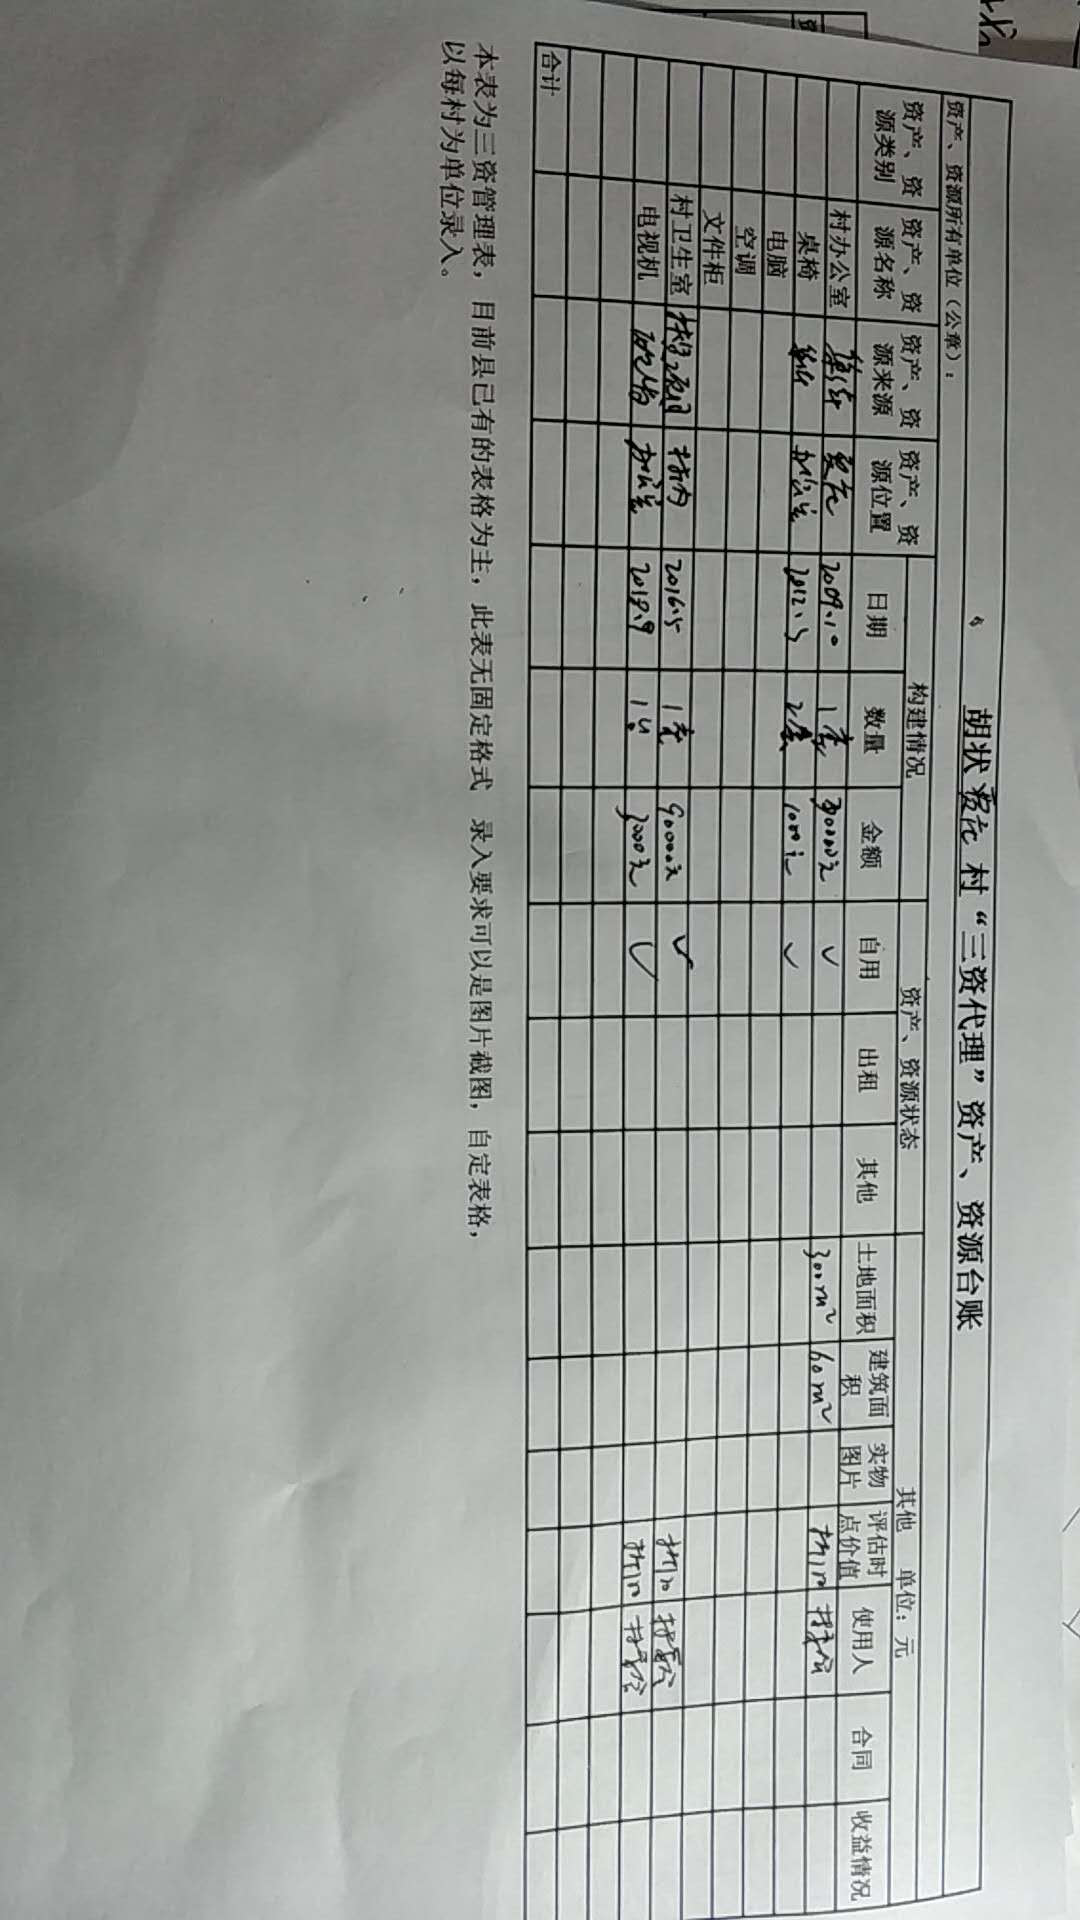 胡状 村“三资代理”资产、资源台账
资产、资源所有单位（公章）：
构建情况 资产、资源状态 其他 单位：元
资产、资源类别 资产、资源名称 资产、资源来源 资产、资源位置 日期 数量 金额 自用 出租 其他 土地面积 建筑面积 实物图片 评估时点价值 使用人 合同 收益情况
村办公室 2009.10 1 ✓ 300m² 60m²
桌椅 办公室 2012.5 2套 1000元 ✓
电脑
空调
文件柜
村卫生室 村内 2016.5 1 90000元 ✓
电视机 办公室 2018.9 1 3000元 ✓
合计
本表为三资管理表，目前县已有的表格为主，此表无固定格式 录入要求可以是图片截图，自定表格，
以每村为单位录入。